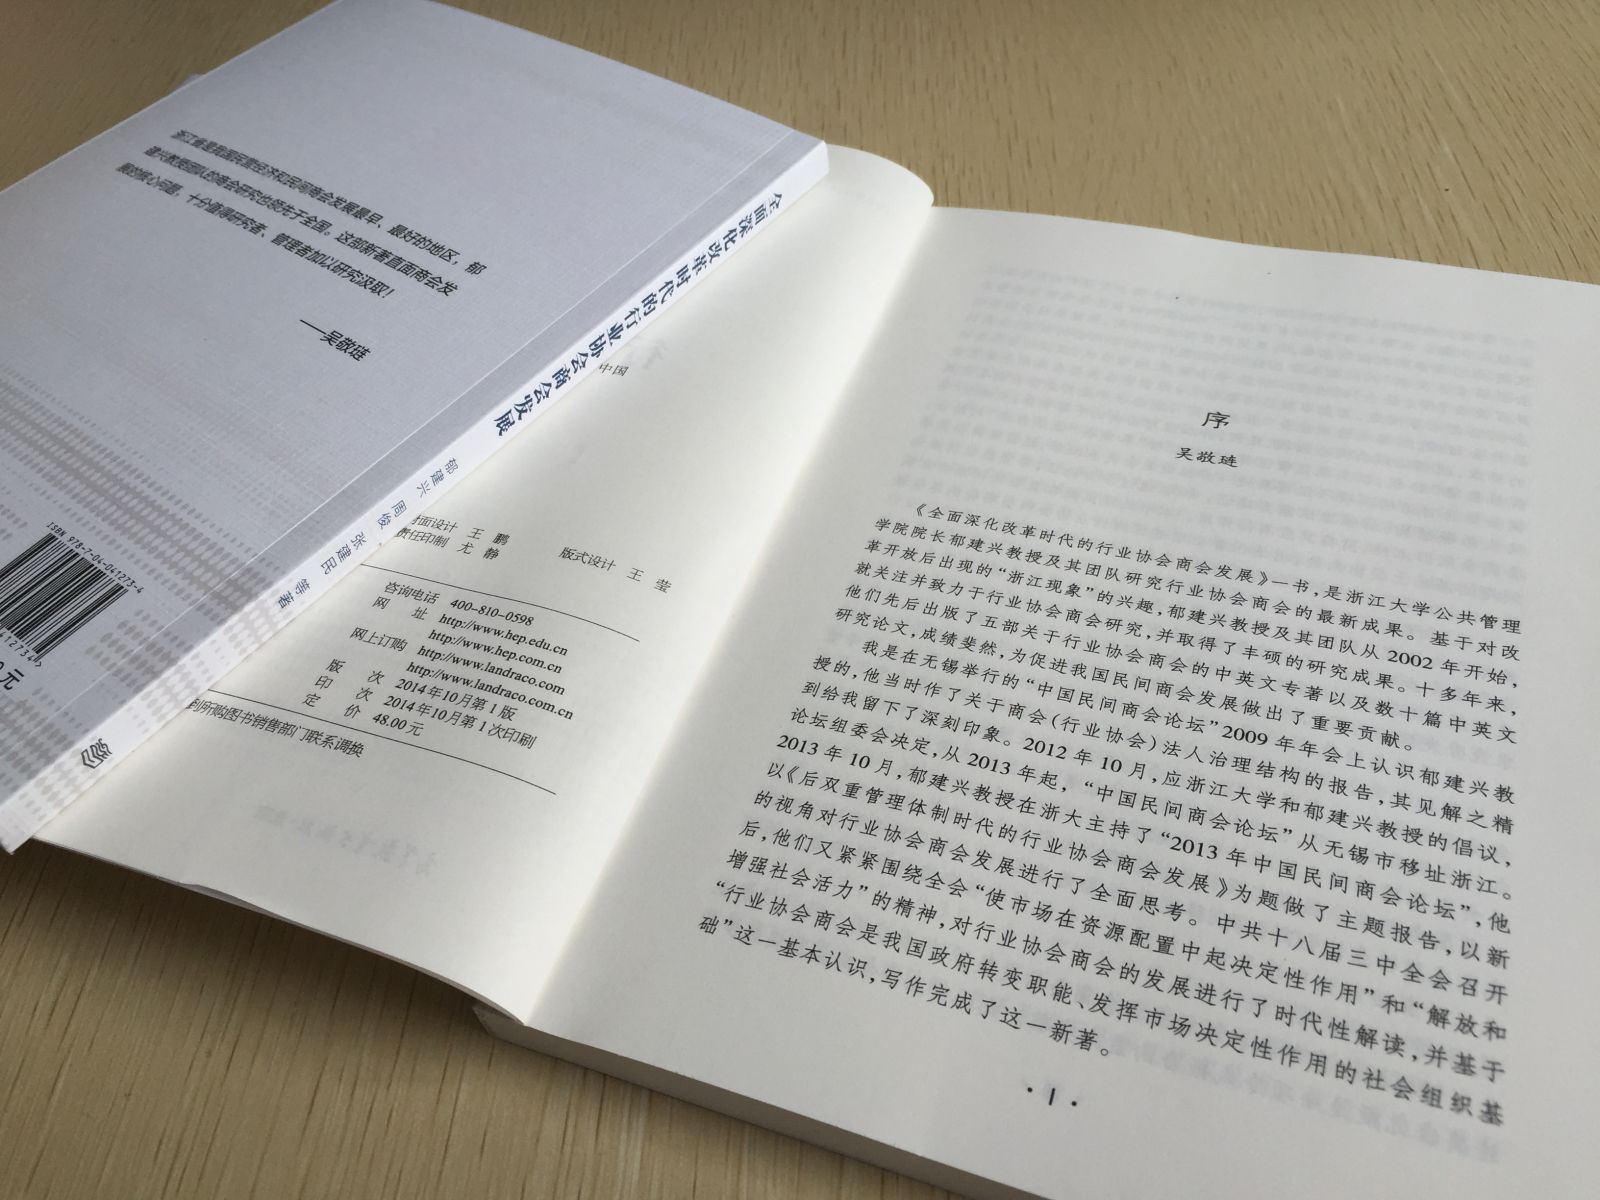 浙江省是我国民营经济和民间商会发展最早、最好的地区，郁
建兴教授团队的商会研究也领先于全国。这部新著直面商会发
展的核心问题，十分值得研究者、管理者加以研究汲取！
——吴敬琏
全面深化改革时代的行业协会商会发展
郁建兴 周俊 张建民 等著
ISBN 978-7-04-041273-4
412734>
元
中国
封面设计 王 鹏
责任印制 尤 静
版式设计 王 莹
咨询电话 400-810-0598
网 址 http://www.hep.edu.cn
http://www.hep.com.cn
网上订购 http://www.landraco.com
http://www.landraco.com.cn
版 次 2014年10月第1版
印 次 2014年10月第1次印刷
定 价 48.00元
到所购图书销售部门联系调换
序
吴敬琏
《全面深化改革时代的行业协会商会发展》一书，是浙江大学公共管理
学院院长郁建兴教授及其团队研究行业协会商会的最新成果。基于对改
革开放后出现的“浙江现象”的兴趣，郁建兴教授及其团队从2002年开始，
就关注并致力于行业协会商会研究，并取得了丰硕的研究成果。十多年来，
他们先后出版了五部关于行业协会商会的中英文专著以及数十篇中英文
研究论文，成绩斐然，为促进我国民间商会发展做出了重要贡献。
我是在无锡举行的“中国民间商会论坛”2009年年会上认识郁建兴教
授的，他当时作了关于商会（行业协会）法人治理结构的报告，其见解之精
到给我留下了深刻印象。2012年10月，应浙江大学和郁建兴教授的倡议，
论坛组委会决定，从2013年起，“中国民间商会论坛”从无锡市移址浙江。
2013年10月，郁建兴教授在浙大主持了“2013年中国民间商会论坛”，他
以《后双重管理体制时代的行业协会商会发展》为题做了主题报告，以新
的视角对行业协会商会发展进行了全面思考。中共十八届三中全会召开
后，他们又紧紧围绕全会“使市场在资源配置中起决定性作用”和“解放和
增强社会活力”的精神，对行业协会商会的发展进行了时代性解读，并基于
“行业协会商会是我国政府转变职能、发挥市场决定性作用的社会组织基
础”这一基本认识，写作完成了这一新著。
· 1 ·